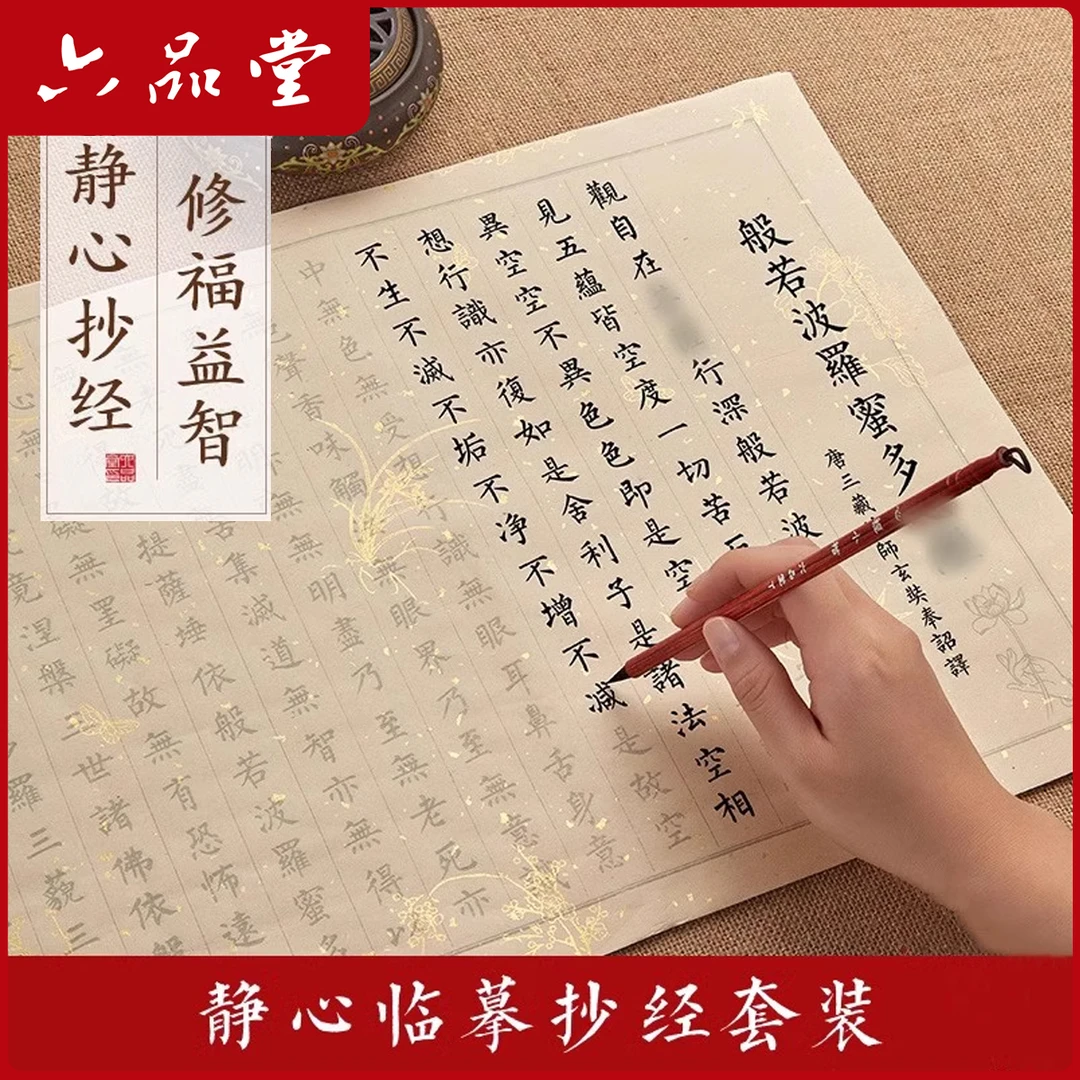 六品堂
修福益智
静心抄经
般若波羅蜜多
唐三藏
師玄奘奉詔譯
觀自在
行深般若波
見五蘊皆空度一切苦
異空空不異色色即是空
想行識亦復如是舍利子是諸法空相
不生不滅不垢不净不增不減是故空
中無色無受想行識無眼耳鼻舌身意
聲香味觸
無眼界乃至無意
無明盡乃至無老死亦
苦集滅道無智亦無得以
提薩埵依般若波羅蜜多
礙無罣礙故無有恐怖遠
竟涅槃三世諸佛依般
羅三藐三
静心临摹抄经套装